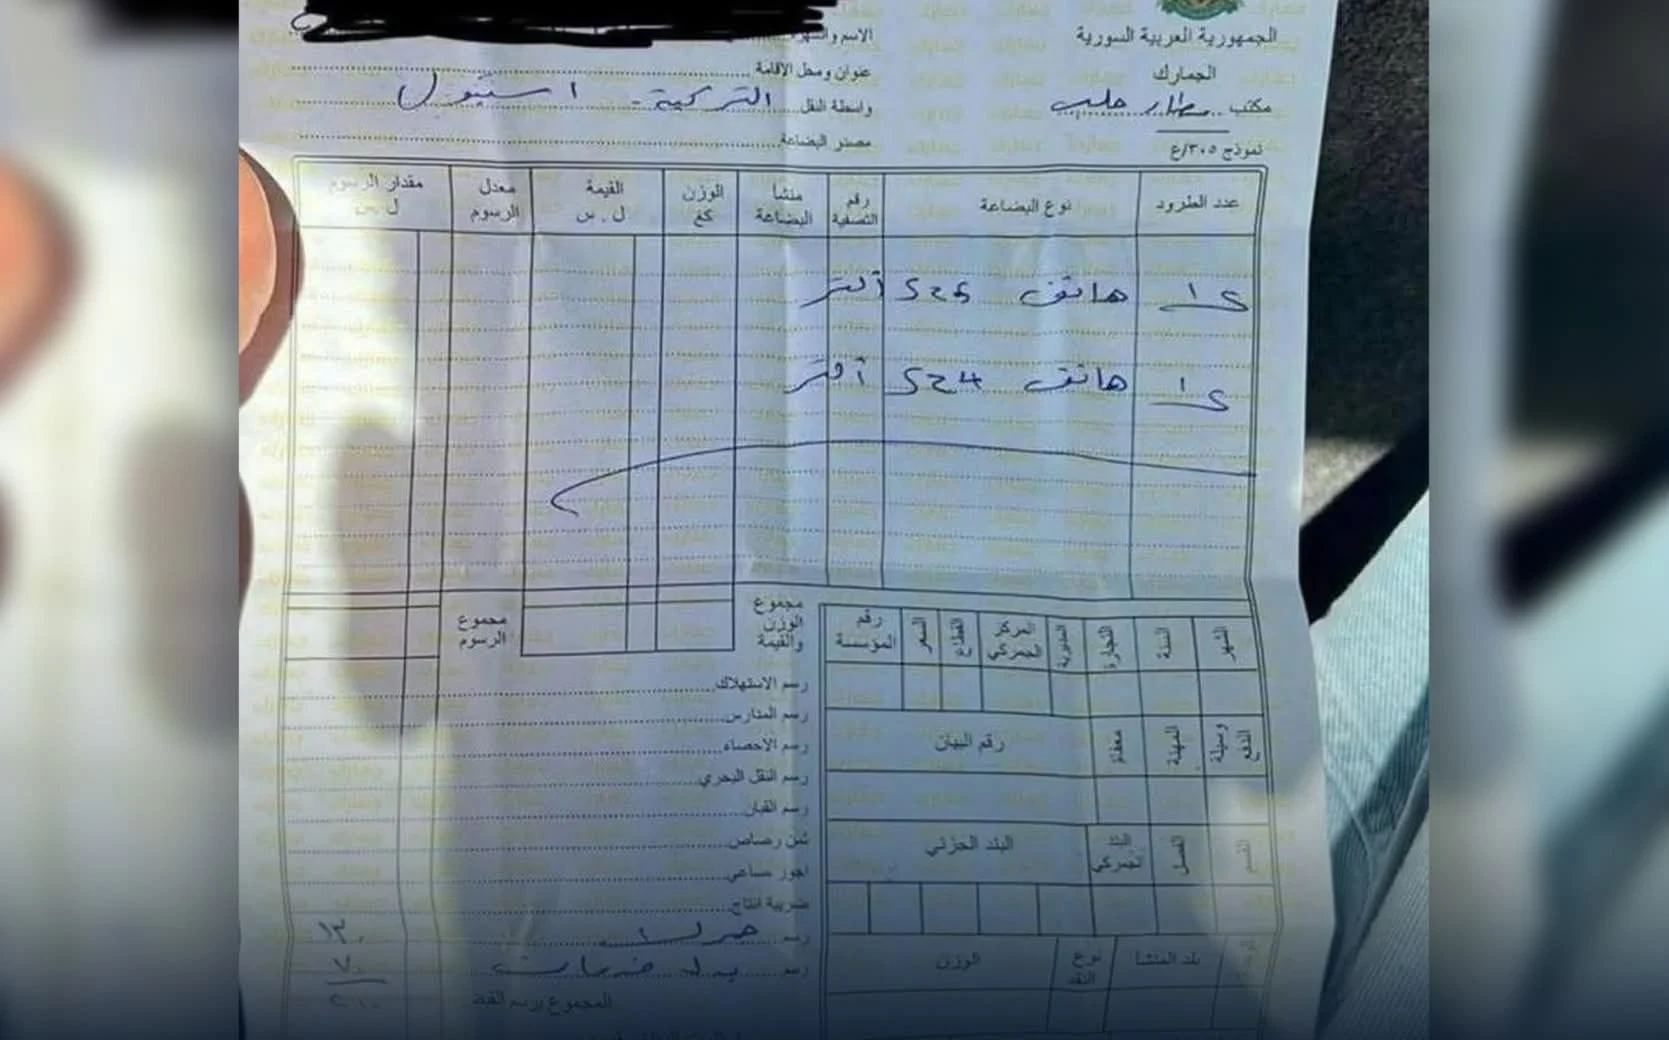 الجمهورية العربية السورية
الجمارك
مكتب مطار حلب
نموذج ٣٠٥/ع
الاسم والشهرة
عنوان ومحل الإقامة
واسطة النقل التركية - استنبول
مصدر البضاعة
عدد الطرود نوع البضاعة رقم التصفية منشأ البضاعة الوزن كغ القيمة ل.س معدل الرسوم مقدار الرسوم ل.س
١ هاتف S25 ألترا
١ هاتف S24 ألترا
مجموع الوزن والقيمة مجموع الرسوم
الشهر السنة التجارة المديرية المركز الجمركي القطاع السعر رقم المؤسسة
وسيلة الدفع المهنة معفاة رقم البيان
القسم الفصل البند الجمركي البند الجزئي
بلد المنشأ نوع النقد الوزن
رسم الاستهلاك
رسم المدارس
رسم الاحصاء
رسم النقل البحري
رسم القبان
ثمن رصاص
اجور ساعي
ضريبة انتاج
رسم ١٣٠
رسم بدل خدمات ٧٠
المجموع برسم القبض